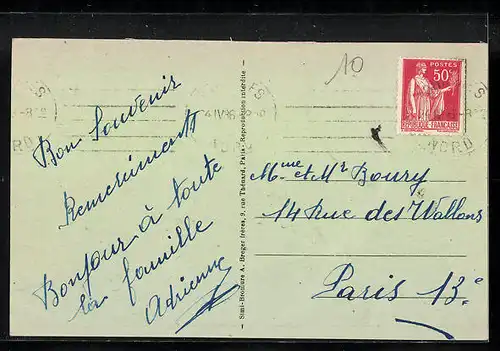 Bon Souvenir
Remerciments
Bonjour à toute
la famille
Adrienne
Simi-Bromure A. Breger frères, 9, rue Thénard, Paris - Reproduction interdite -
10
POSTES
50c
RÉPUBLIQUE FRANÇAISE
NORD
Mme et Mr Boury
14 Rue des Wallons
Paris 13e